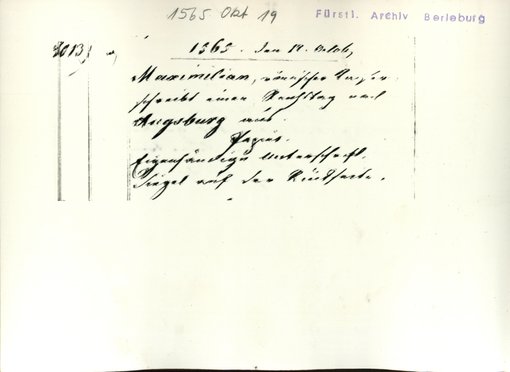 1565 Okt 19
Fürstl. Archiv Berleburg
1565. den 19. Octob.
Maximilian, römischer Kaiser,
schreibt einen Reichstag nach
Augsburg aus.
Papier.
Eigenhändige Unterschrift.
Siegel auf der Rückseite.